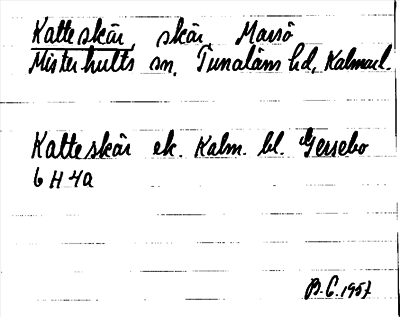 Katteskär, skär, Marsö
Misterhults sn, Tunaläns hd, Kalmar l.
Katteskär ek. Kalm. bl. Gersebo
6 H 4a
B.C. 1957